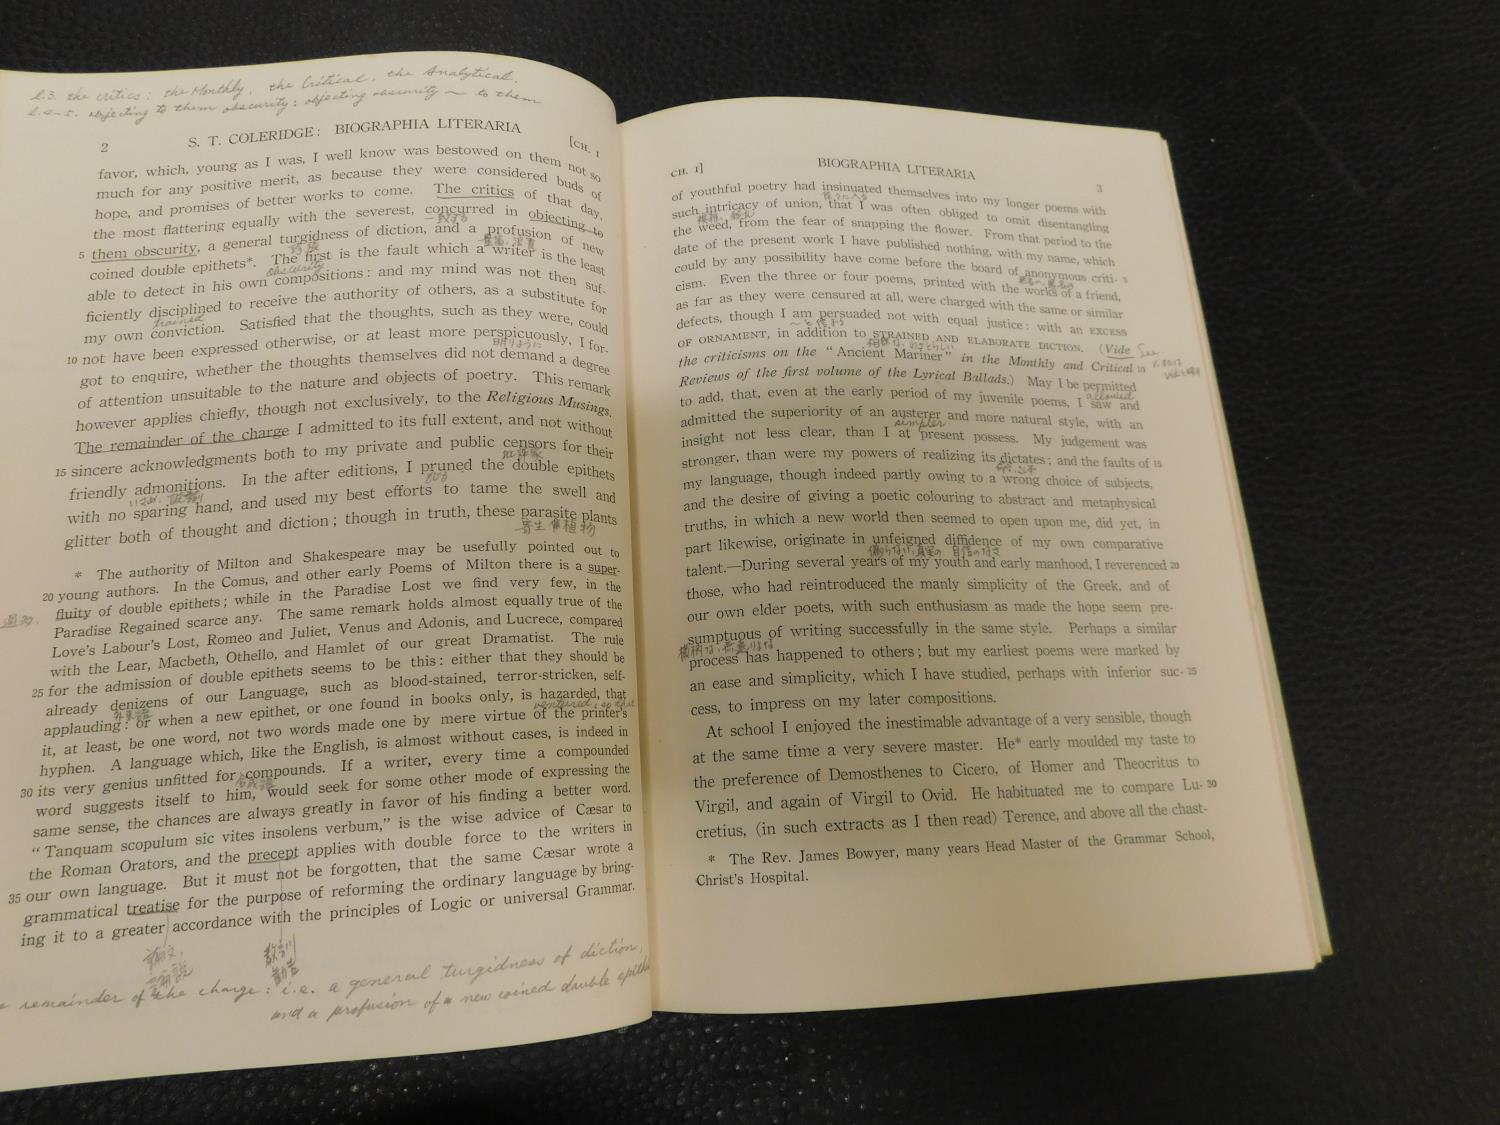 l.3. the critics: the Monthly, the Critical, the Analytical.
l.4-5. objecting to them obscurity: objecting obscurity ~ to them
2 S. T. COLERIDGE: BIOGRAPHIA LITERARIA [CH. I
favor, which, young as I was, I well know was bestowed on them not so
much for any positive merit, as because they were considered buds of
hope, and promises of better works to come. The critics of that day,
the most flattering equally with the severest, concurred in objecting to
一致する
5 them obscurity, a general turgidness of diction, and a profusion of new
coined double epithets*. The first is the fault which a writer is the least
obscurity
able to detect in his own compositions: and my mind was not then suf-
ficiently disciplined to receive the authority of others, as a substitute for
trained
my own conviction. Satisfied that the thoughts, such as they were, could
10 not have been expressed otherwise, or at least more perspicuously, I for-
明りように
got to enquire, whether the thoughts themselves did not demand a degree
of attention unsuitable to the nature and objects of poetry. This remark
however applies chiefly, though not exclusively, to the Religious Musings.
The remainder of the charge I admitted to its full extent, and not without
15 sincere acknowledgments both to my private and public censors for their
批評家
friendly admonitions. In the after editions, I pruned the double epithets
with no sparing hand, and used my best efforts to tame the swell and
glitter both of thought and diction; though in truth, these parasite plants
寄生植物
* The authority of Milton and Shakespeare may be usefully pointed out to
20 young authors. In the Comus, and other early Poems of Milton there is a super-
過多.
fluity of double epithets; while in the Paradise Lost we find very few, in the
Paradise Regained scarce any. The same remark holds almost equally true of the
Love's Labour's Lost, Romeo and Juliet, Venus and Adonis, and Lucrece, compared
with the Lear, Macbeth, Othello, and Hamlet of our great Dramatist. The rule
25 for the admission of double epithets seems to be this: either that they should be
already denizens of our Language, such as blood-stained, terror-stricken, self-
外来語
applauding: or when a new epithet, or one found in books only, is hazarded, that
ventured; so that
it, at least, be one word, not two words made one by mere virtue of the printer's
hyphen. A language which, like the English, is almost without cases, is indeed in
30 its very genius unfitted for compounds. If a writer, every time a compounded
合成語
word suggests itself to him, would seek for some other mode of expressing the
same sense, the chances are always greatly in favor of his finding a better word.
"Tanquam scopulum sic vites insolens verbum," is the wise advice of Cæsar to
the Roman Orators, and the precept applies with double force to the writers in
35 our own language. But it must not be forgotten, that the same Cæsar wrote a
grammatical treatise for the purpose of reforming the ordinary language by bring-
ing it to a greater accordance with the principles of Logic or universal Grammar.
論文, 教訓
論説 勧告
remainder of the charge: i.e. a general turgidness of diction,
and a profusion of new coined double
CH. I] BIOGRAPHIA LITERARIA 3
of youthful poetry had insinuated themselves into my longer poems with
such intricacy of union, that I was often obliged to omit disentangling
the weed, from the fear of snapping the flower. From that period to the
date of the present work I have published nothing, with my name, which
could by any possibility have come before the board of anonymous criti- 5
cism. Even the three or four poems, printed with the works of a friend,
as far as they were censured at all, were charged with the same or similar
defects, though I am persuaded not with equal justice: with an EXCESS
〜と信ずる
OF ORNAMENT, in addition to STRAINED AND ELABORATE DICTION. (Vide See
the criticisms on the "Ancient Mariner" in the Monthly and Critical 10
Reviews of the first volume of the Lyrical Ballads.) May I be permitted
allowed
to add, that, even at the early period of my juvenile poems, I saw and
admitted the superiority of an austerer and more natural style, with an
simpler
insight not less clear, than I at present possess. My judgement was
stronger, than were my powers of realizing its dictates; and the faults of 15
my language, though indeed partly owing to a wrong choice of subjects,
and the desire of giving a poetic colouring to abstract and metaphysical
truths, in which a new world then seemed to open upon me, did yet, in
part likewise, originate in unfeigned diffidence of my own comparative
偽らない,真実の 自信のなさ
talent.—During several years of my youth and early manhood, I reverenced 20
those, who had reintroduced the manly simplicity of the Greek, and of
our own elder poets, with such enthusiasm as made the hope seem pre-
sumptuous of writing successfully in the same style. Perhaps a similar
process has happened to others; but my earliest poems were marked by
an ease and simplicity, which I have studied, perhaps with inferior suc- 25
cess, to impress on my later compositions.
At school I enjoyed the inestimable advantage of a very sensible, though
at the same time a very severe master. He* early moulded my taste to
the preference of Demosthenes to Cicero, of Homer and Theocritus to
Virgil, and again of Virgil to Ovid. He habituated me to compare Lu- 30
cretius, (in such extracts as I then read) Terence, and above all the chast-
* The Rev. James Bowyer, many years Head Master of the Grammar School,
Christ's Hospital.